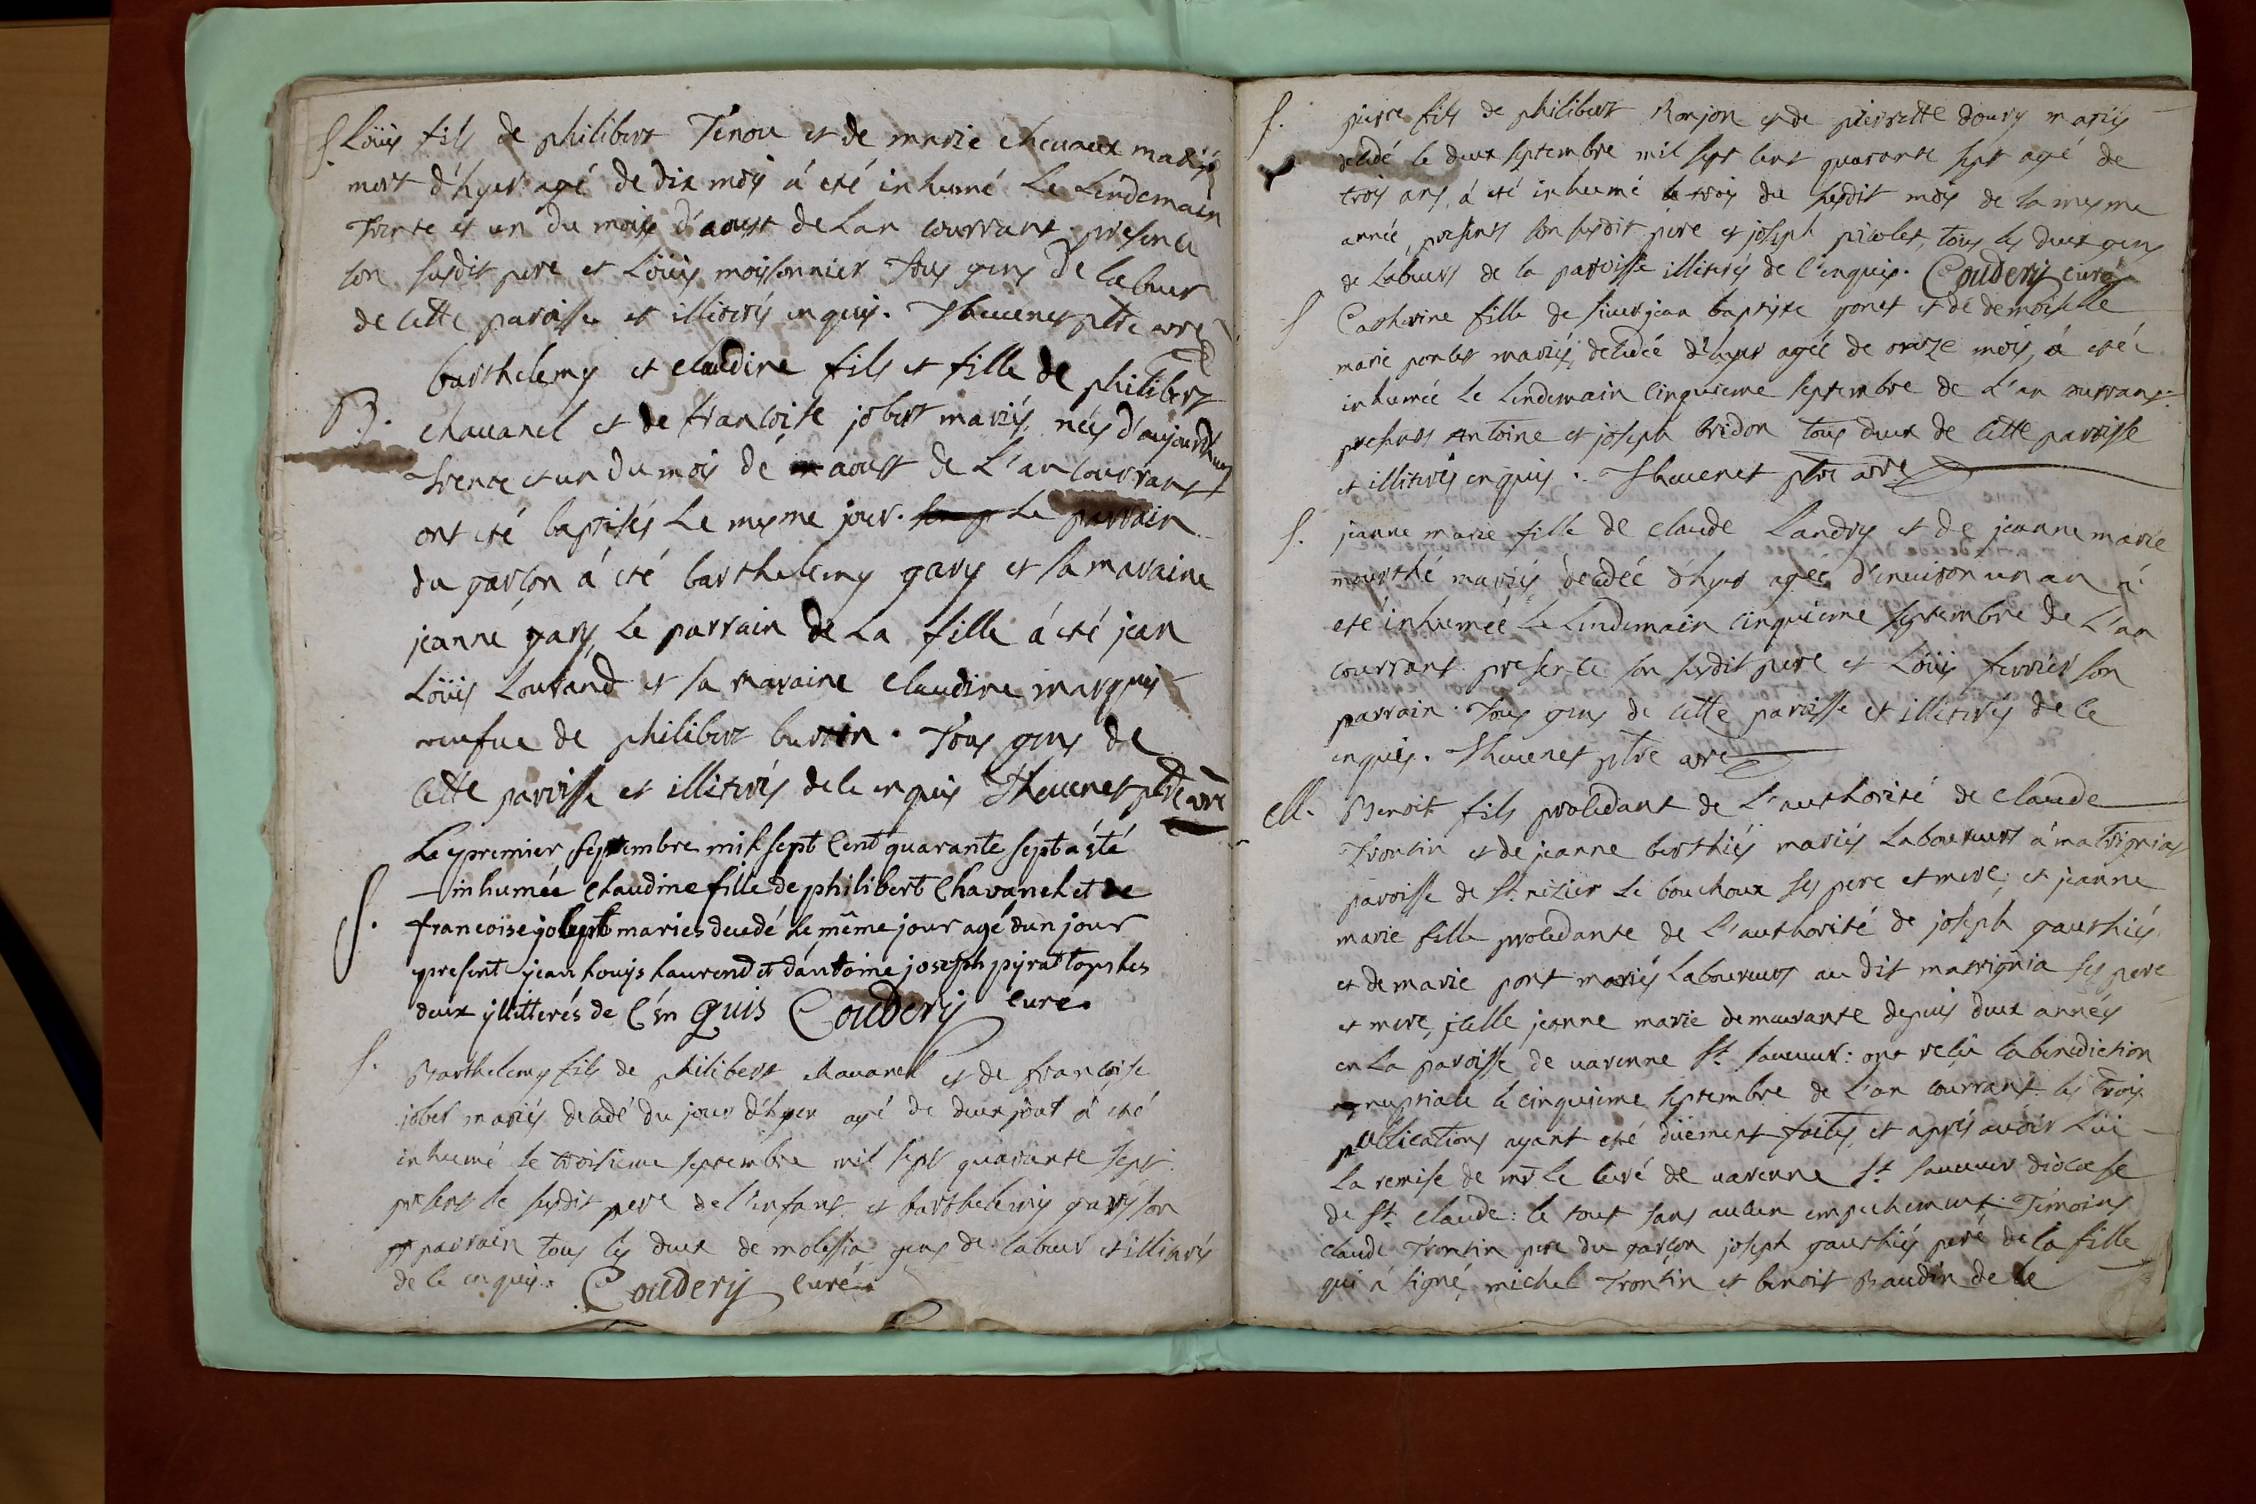 S. Loüis fils de philibert Tenou et de marie chevaux mariés
mort d'hyer agé de dix mois á eté inhumé Le Lendemain
Trente et un du mois d'aoust de Lan courrant presence
son susdit pere et Loüis moissonnier tous gens De labeur
de cette paroisse et illiterés enquis. Thevenet ptre vre
B. barthelemy et claudine fils et fille de philibert
chavanel et de françoise jobert mariés, néés d'aujourdhuy
trente et un du mois dé aoust de L'an courrant
ont eté baptisés Le mesme jour. Le parrain
du garçon á eté barthelemy gary et sa maraine
jeanne gary, Le parrain de La fille á eté jean
Loüis Lourand et sa maraine claudine marquis
veufue de philibert buttin. Tous gens de
cette paroisse et illiterés de ce enquis Thevenet ptre vre
Le premier septembre mil sept Cent quarante sept a été
S. inhumée Claudine fille de philibert Chavanel et de
francoise jobert maries decedé le même jour agé dun jour
present jean Louis Laurend et dantoine joseph pyrat tous les
deux yllitterés de C'en quis Coudery Curé.
S. Barthelemy fils de philibert chavanel et de françoise
jober mariés decedé du jour d'hyer agé de deux jour á eté
inhumé le troisieme septembre mil sept quarante sept.
present le susdit pere de l'enfant et barthelemy gary son
parrain tous les deux de molessia gens de labeur et illiterés
de ce enquis. Coudery Curé.
S. pierre fils de philibert Ronjon et de pierrette doury mariés
decedé le deux septembre mil sept cent quarante sept agé de
trois ans, á eté inhumé le trois du susdit mois de la mesme
année, presents son susdit pere et joseph picolet, tous les deux gens
de Labeurs de la paroisse illiterés de l'enquis. Coudery curé
S Catherine fille de sieur jean baptiste gonet et de demoiselle
marie ponlet mariés, decedée d'hyer agée de onze mois, á eté
inhumée Le Lendemain Cinquieme septembre de L'an currant.
presents Antoine et joseph bridon tous deux de cette paroisse
et illiterés enquis. Thevenet ptre vre
S. jeanne marie fille de claude Landry et de jeanne marie
mourthé mariés decedée d'hyer agée d'environ un an á
eté inhumée Le Lendemain cinquieme septembre de L'an
courrant. presence son susdit pere et Loüis ferrier son
parrain. Tous gens de cette paroisse et illiterés de ce
enquis. Thevenet ptre vre
M. Benoit fils procedant de L'authorité de claude
Trontin et de jeanne berthiés mariés Laboureurs á matrignia
paroisse de St. nizier Le bouchoux ses pere et mere; et jeanne
marie fille procedante de L'authorité de joseph gauthiés
et de marie pont mariés Laboureurs au dit matrignia ses pere
et mere, jcelle jeanne marie demeurante depuis deux années
en La paroisse de varenne St. sauveur: ont reçu la benediction
nuptiale le cinquieme septembre de L'an courrant. les Trois
publications ayant eté düement faites, et aprés avoir Lüe
La remise de mr. Le curé de varenne St. sauveur diocese
de St. claude: le tout sans aucun empechement. Témoins
claude Trontin pere du garçon joseph gauthiés pere de la fille
qui á signé, michel Trontin et benoit Baudin de ce